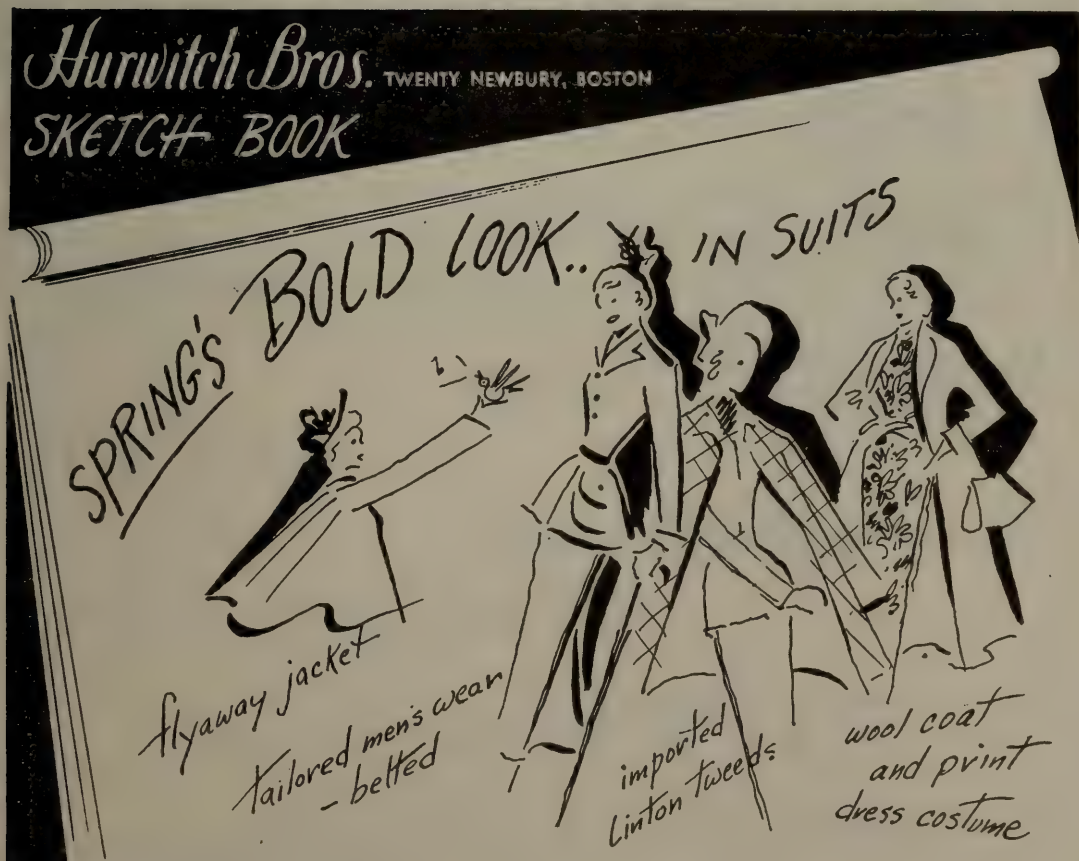 Hurwitch Bros. TWENTY NEWBURY, BOSTON
SKETCH BOOK
SPRING'S BOLD LOOK.. IN SUITS
flyaway jacket
tailored men's wear
- belted
imported
Linton tweeds
wool coat
and print
dress costume